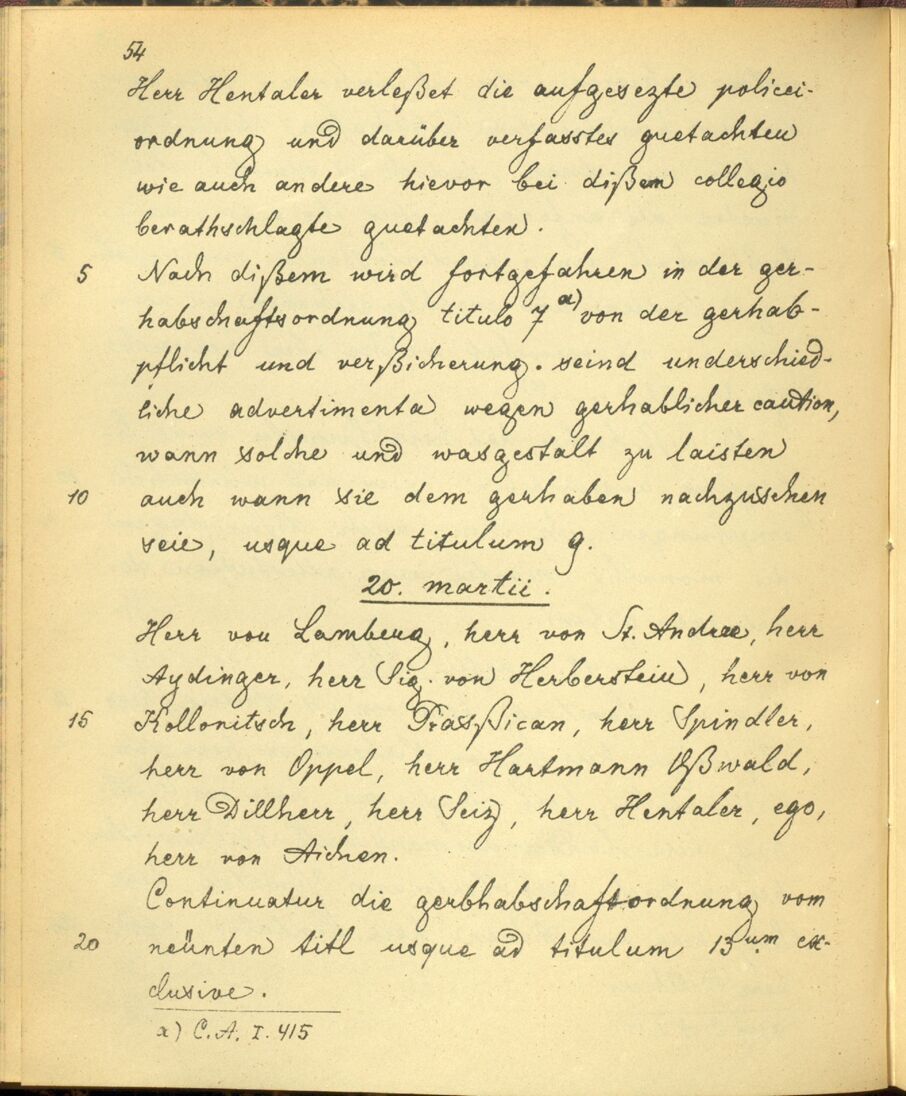 54
Herr Hentaler verleßet die aufgesezte policei-
ordnung und darüber verfasstes guetachten
wie auch andere hievor bei dißem collegio
berathschlagte guetachten.
5 Nach dißem wird fortgefahren in der ger-
habschaftsordnung titulo 7 a) von der gerhab-
pflicht und verßicherung. seind underschied-
liche advertimenta wegen gerhablicher caution,
wann solche und wasgestalt zu laisten
10 auch wann sie dem gerhaben nachzusehen
seie, usque ad titulum 9.
20. martii.
Herr von Lamberg, herr von St. Andree, herr
Aydinger, herr Sig. von Herberstein, herr von
15 Kollonitsch, herr Prasßican, herr Spindler,
herr von Oppel, herr Hartmann Oßwald,
herr Dillherr, herr Seiz, herr Hentaler, ego,
herr von Aichen.
Continuatur die gerbhabschaftordnung vom
20 neünten titl usque ad titulum 13um ex-
clusive.
a) C.A. I. 415